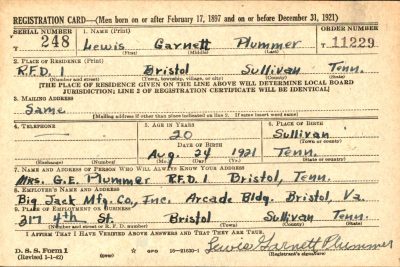 REGISTRATION CARD—(Men born on or after February 17, 1897 and on or before December 31, 1921)
SERIAL NUMBER 1. NAME (Print) ORDER NUMBER
T 248 Lewis Garnett Plummer T 11229
(First) (Middle) (Last)
2. PLACE OF RESIDENCE (Print)
R.F.D. 1 Bristol Sullivan Tenn.
(Number and street) (Town, township, village, or city) (County) (State)
[THE PLACE OF RESIDENCE GIVEN ON THE LINE ABOVE WILL DETERMINE LOCAL BOARD
JURISDICTION; LINE 2 OF REGISTRATION CERTIFICATE WILL BE IDENTICAL]
3. MAILING ADDRESS
Same
[Mailing address if other than place indicated on line 2. If same insert word same]
4. TELEPHONE 5. AGE IN YEARS 6. PLACE OF BIRTH
20 Sullivan
DATE OF BIRTH (Town or county)
Aug. 24 1921 Tenn.
(Exchange) (Number) (Mo.) (Day) (Yr.) (State or country)
7. NAME AND ADDRESS OF PERSON WHO WILL ALWAYS KNOW YOUR ADDRESS
Mrs. G.E. Plummer R.F.D. 1 Bristol, Tenn.
8. EMPLOYER'S NAME AND ADDRESS
Big Jack Mfg. Co., Inc. Arcade Bldg. Bristol, Va.
9. PLACE OF EMPLOYMENT OR BUSINESS
317 4th St. Bristol Sullivan Tenn.
(Number and street or R. F. D. number) (Town) (County) (State)
I AFFIRM THAT I HAVE VERIFIED ABOVE ANSWERS AND THAT THEY ARE TRUE.
D. S. S. FORM 1 GPO 16—21630-1 Lewis Garnett Plummer
(Revised 1-1-42) (over) (Registrant's signature)